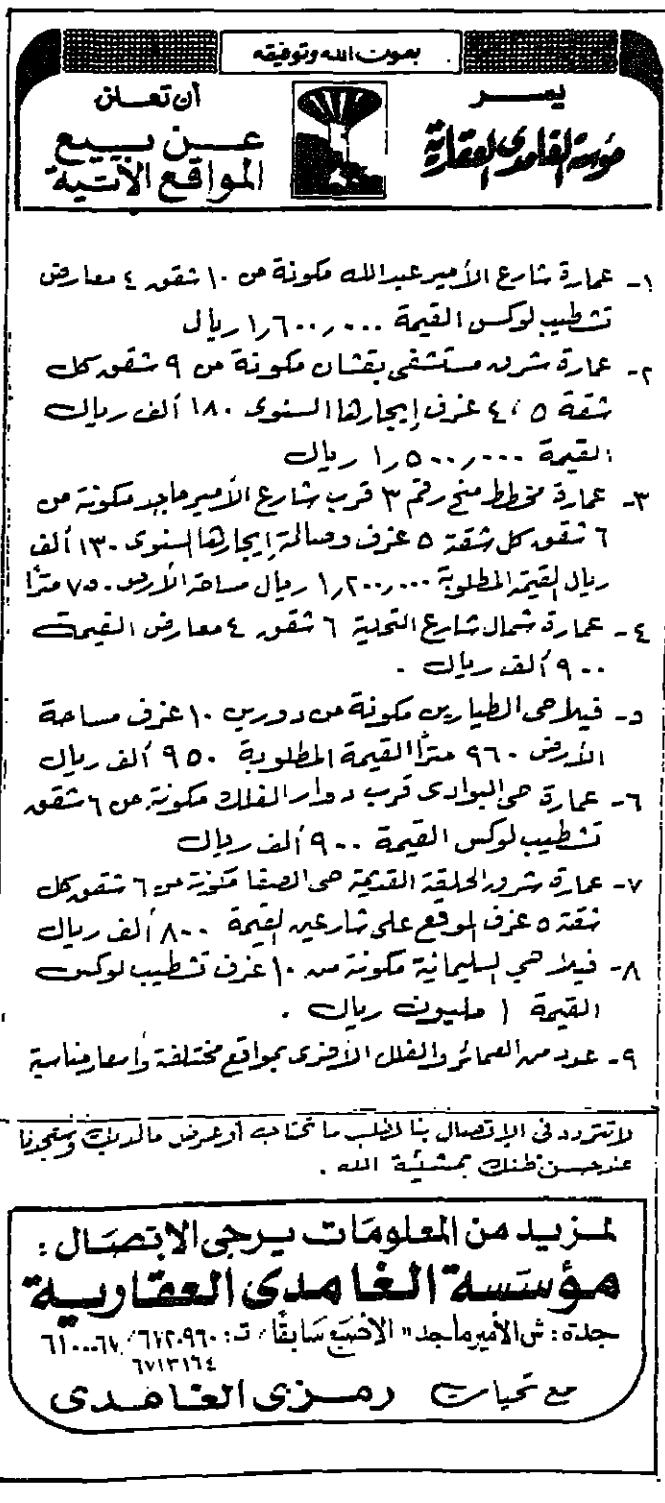 بعون الله وتوفيقه
يسر
مؤسسة الغامدي العقارية
أن تعلن
عن بيع
المواقع الآتية
١- عمارة شارع الأمير عبدالله مكونة من ١٠ شقق ٤ معارض
تشطيب لوكس القيمة ١,٦٠٠,٠٠٠ ريال
٢- عمارة شرق مستشفى بقشان مكونة من ٩ شقق كل
شقة ٥ ، ٤ غرف إيجارها السنوى ١٨٠ ألف ريال
القيمة ١,٥٠٠,٠٠٠ ريال
٣- عمارة مخطط منح رقم ٣ قرب شارع الأمير ماجد مكونة من
٦ شقق كل شقة ٥ غرف وصالة إيجارها السنوى ١٣٠ ألف
ريال القيمة المطلوبة ١,٢٠٠,٠٠٠ ريال مساحة الأرض ٧٥٠ مترًا
٤- عمارة شمال شارع التحلية ٦ شقق ٤ معارض القيمة
٩٠٠ ألف ريال .
٥- فيلا حى الطيارين مكونة من دورين ١٠ غرف مساحة
الأرض ٩٦٠ مترًا القيمة المطلوبة ٩٥٠ ألف ريال
٦- عمارة حى البوادى قرب دوار الفلك مكونة من ٦ شقق
تشطيب لوكس القيمة ٩٠٠ ألف ريال
٧- عمارة شرق الحلقة القديمة حى الصفا مكونة من ٦ شقق كل
شقة ٥ غرف الموقع على شارعين القيمة ٨٠٠ ألف ريال
٨- فيلا حي السليمانية مكونة من ١٠ غرف تشطيب لوكس
القيمة ١ مليون ريال .
٩- عدد من العمائر والفلل الأخرى بمواقع مختلفة وأسعار مناسبة
لا تتردد فى الإتصال بنا لطلب ما تحتاجه أو عرض ما لديك وستجدنا
عند حسن ظنك بمشيئة الله .
لمزيد من المعلومات يرجى الاتصال :
مؤسسة الغامدى العقارية
جدة : ش الأمير ماجد "السبعين سابقًا" ت : ٦٧٢٠٩٦٠ / ٦١٠٠٠٦٧
٦٧١٣١٦٤
مع تحيات رمزى الغامدى